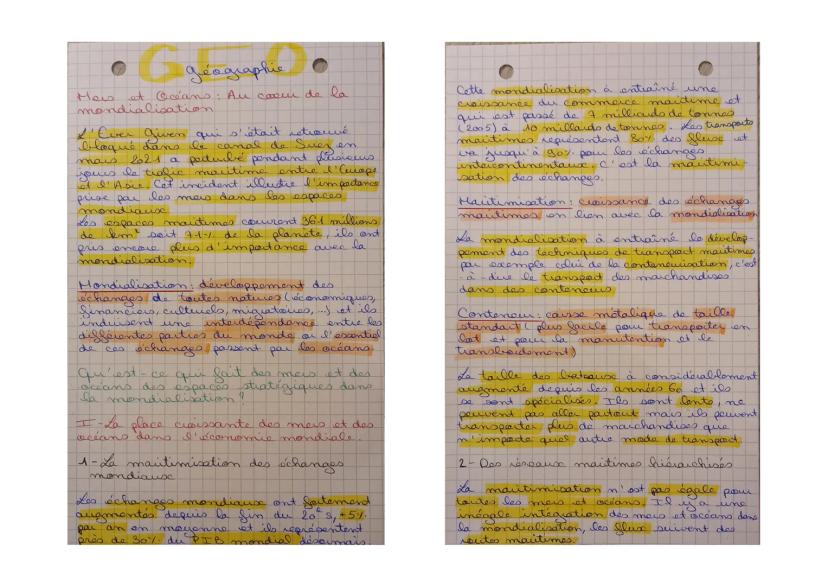 GEO
Géographie
Mers et Océans : Au cœur de la
mondialisation
L'Ever Given qui s'était retrouvé
bloqué dans le canal de Suez en
mars 2021 a perturbé pendant plusieurs
jours le trafic maritime entre l'Europe
et l'Asie. Cet incident illustre l'importance
prise par les mers dans les espaces
mondiaux.
Les espaces maritimes couvrent 361 millions
de km² soit 71% de la planète, ils ont
pris encore plus d'importance avec la
mondialisation.
Mondialisation : développement des
échanges de toutes natures (économiques,
financiers, culturels, migratoires, ...) et ils
induisent une interdépendance entre les
différentes parties du monde où l'essentiel
de ces échanges passent par les océans.
Qu'est-ce qui fait des mers et des
océans des espaces stratégiques dans
la mondialisation ?
I - La place croissante des mers et des
océans dans l'économie mondiale.
1 - La maritimisation des échanges
mondiaux
Les échanges mondiaux ont fortement
augmentés depuis la fin du 20e s, +5%
par an en moyenne et ils représentent
près de 30% du PIB mondial désormais.
Cette mondialisation à entraîné une
croissance du commerce maritime et
qui est passé de 7 milliards de tonnes
(2005) à 10 milliards de tonnes. Les transports
maritimes représentent 80% des flux et
va jusqu'à 90% pour les échanges
intercontinentaux. C'est la maritimi-
sation des échanges.
Maritimisation : croissance des échanges
maritimes en lien avec la mondialisation
La mondialisation à entraîné le dévelop-
pement des techniques de transport maritimes
par exemple celui de la conteneurisation, c'est
-à-dire le transport des marchandises
dans des conteneurs
Conteneur : caisse métalique de taille
standart (plus facile pour transporter en
lot et pour la manutention et le
transbordement)
La taille des bateaux à considérablement
augmenté depuis les années 60 et ils
se sont spécialisés. Ils sont lents, ne
peuvent pas aller partout mais ils peuvent
transporter plus de marchandises que
n'importe quel autre mode de transport.
2 - Des réseaux maritimes hiérarchisés
La maritimisation n'est pas égale pour
toutes les mers et océans. Il y a une
inégale intégration des mers et océans dans
la mondialisation, les flux suivent des
routes maritimes.